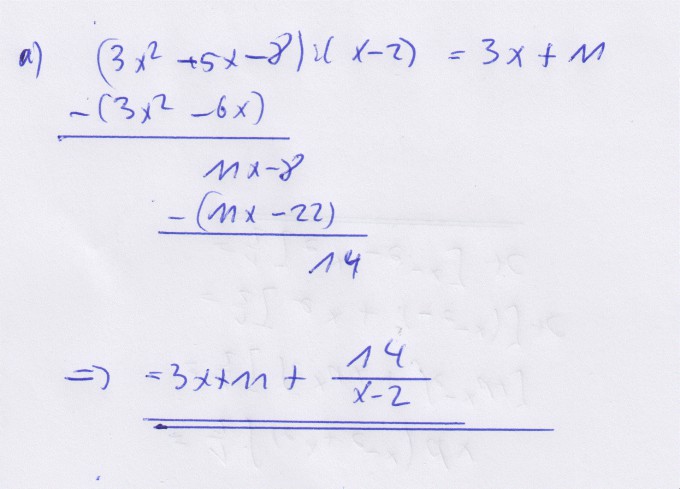 a) (3x² +5x-8):(x-2) = 3x + 11
-(3x² -6x)
11x-8
-(11x -22)
14
=> =3x+11+ 14/(x-2)